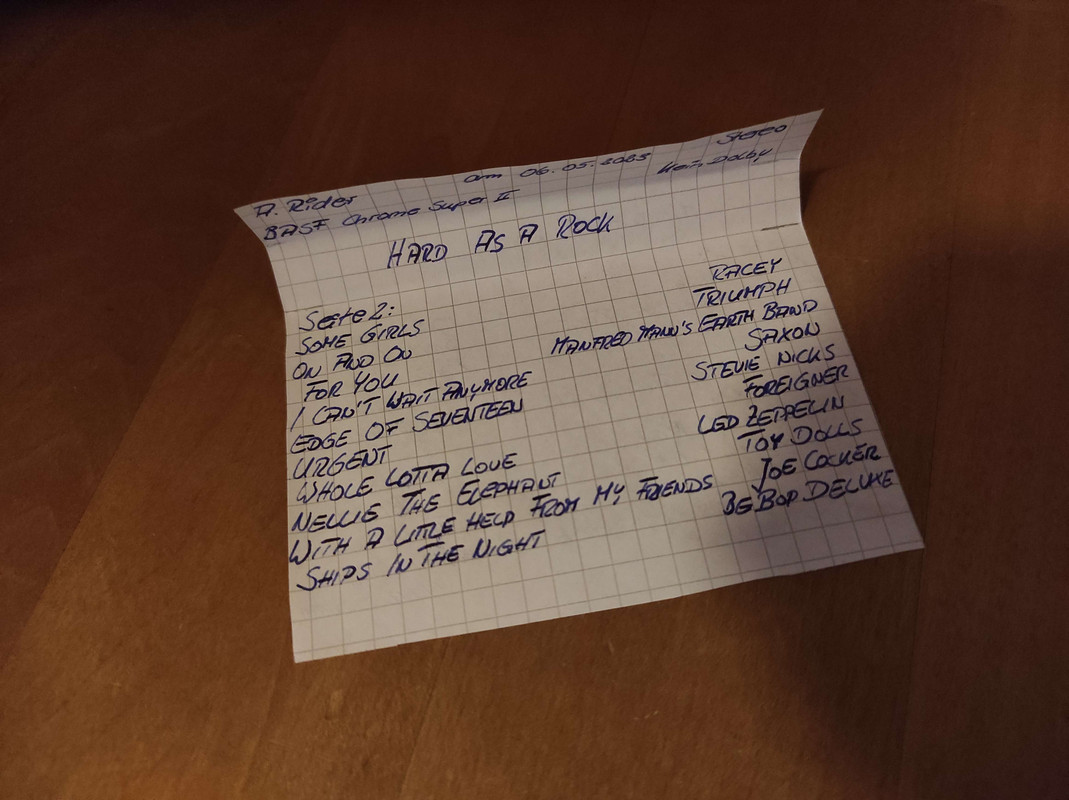 A. Rider am 06.05.2025 Stereo
BASF Chrome Super II Kein Dolby
HARD AS A ROCK
Seite 2:
SOME GIRLS RACEY
ON AND ON TRIUMPH
FOR YOU MANFRED MANN'S EARTH BAND
I CAN'T WAIT ANYMORE SAXON
EDGE OF SEVENTEEN STEVIE NICKS
URGENT FOREIGNER
WHOLE LOTTA LOVE LED ZEPPELIN
NELLIE THE ELEPHANT TOY DOLLS
WITH A LITTLE HELP FROM MY FRIENDS JOE COCKER
SHIPS IN THE NIGHT BE BOP DELUXE